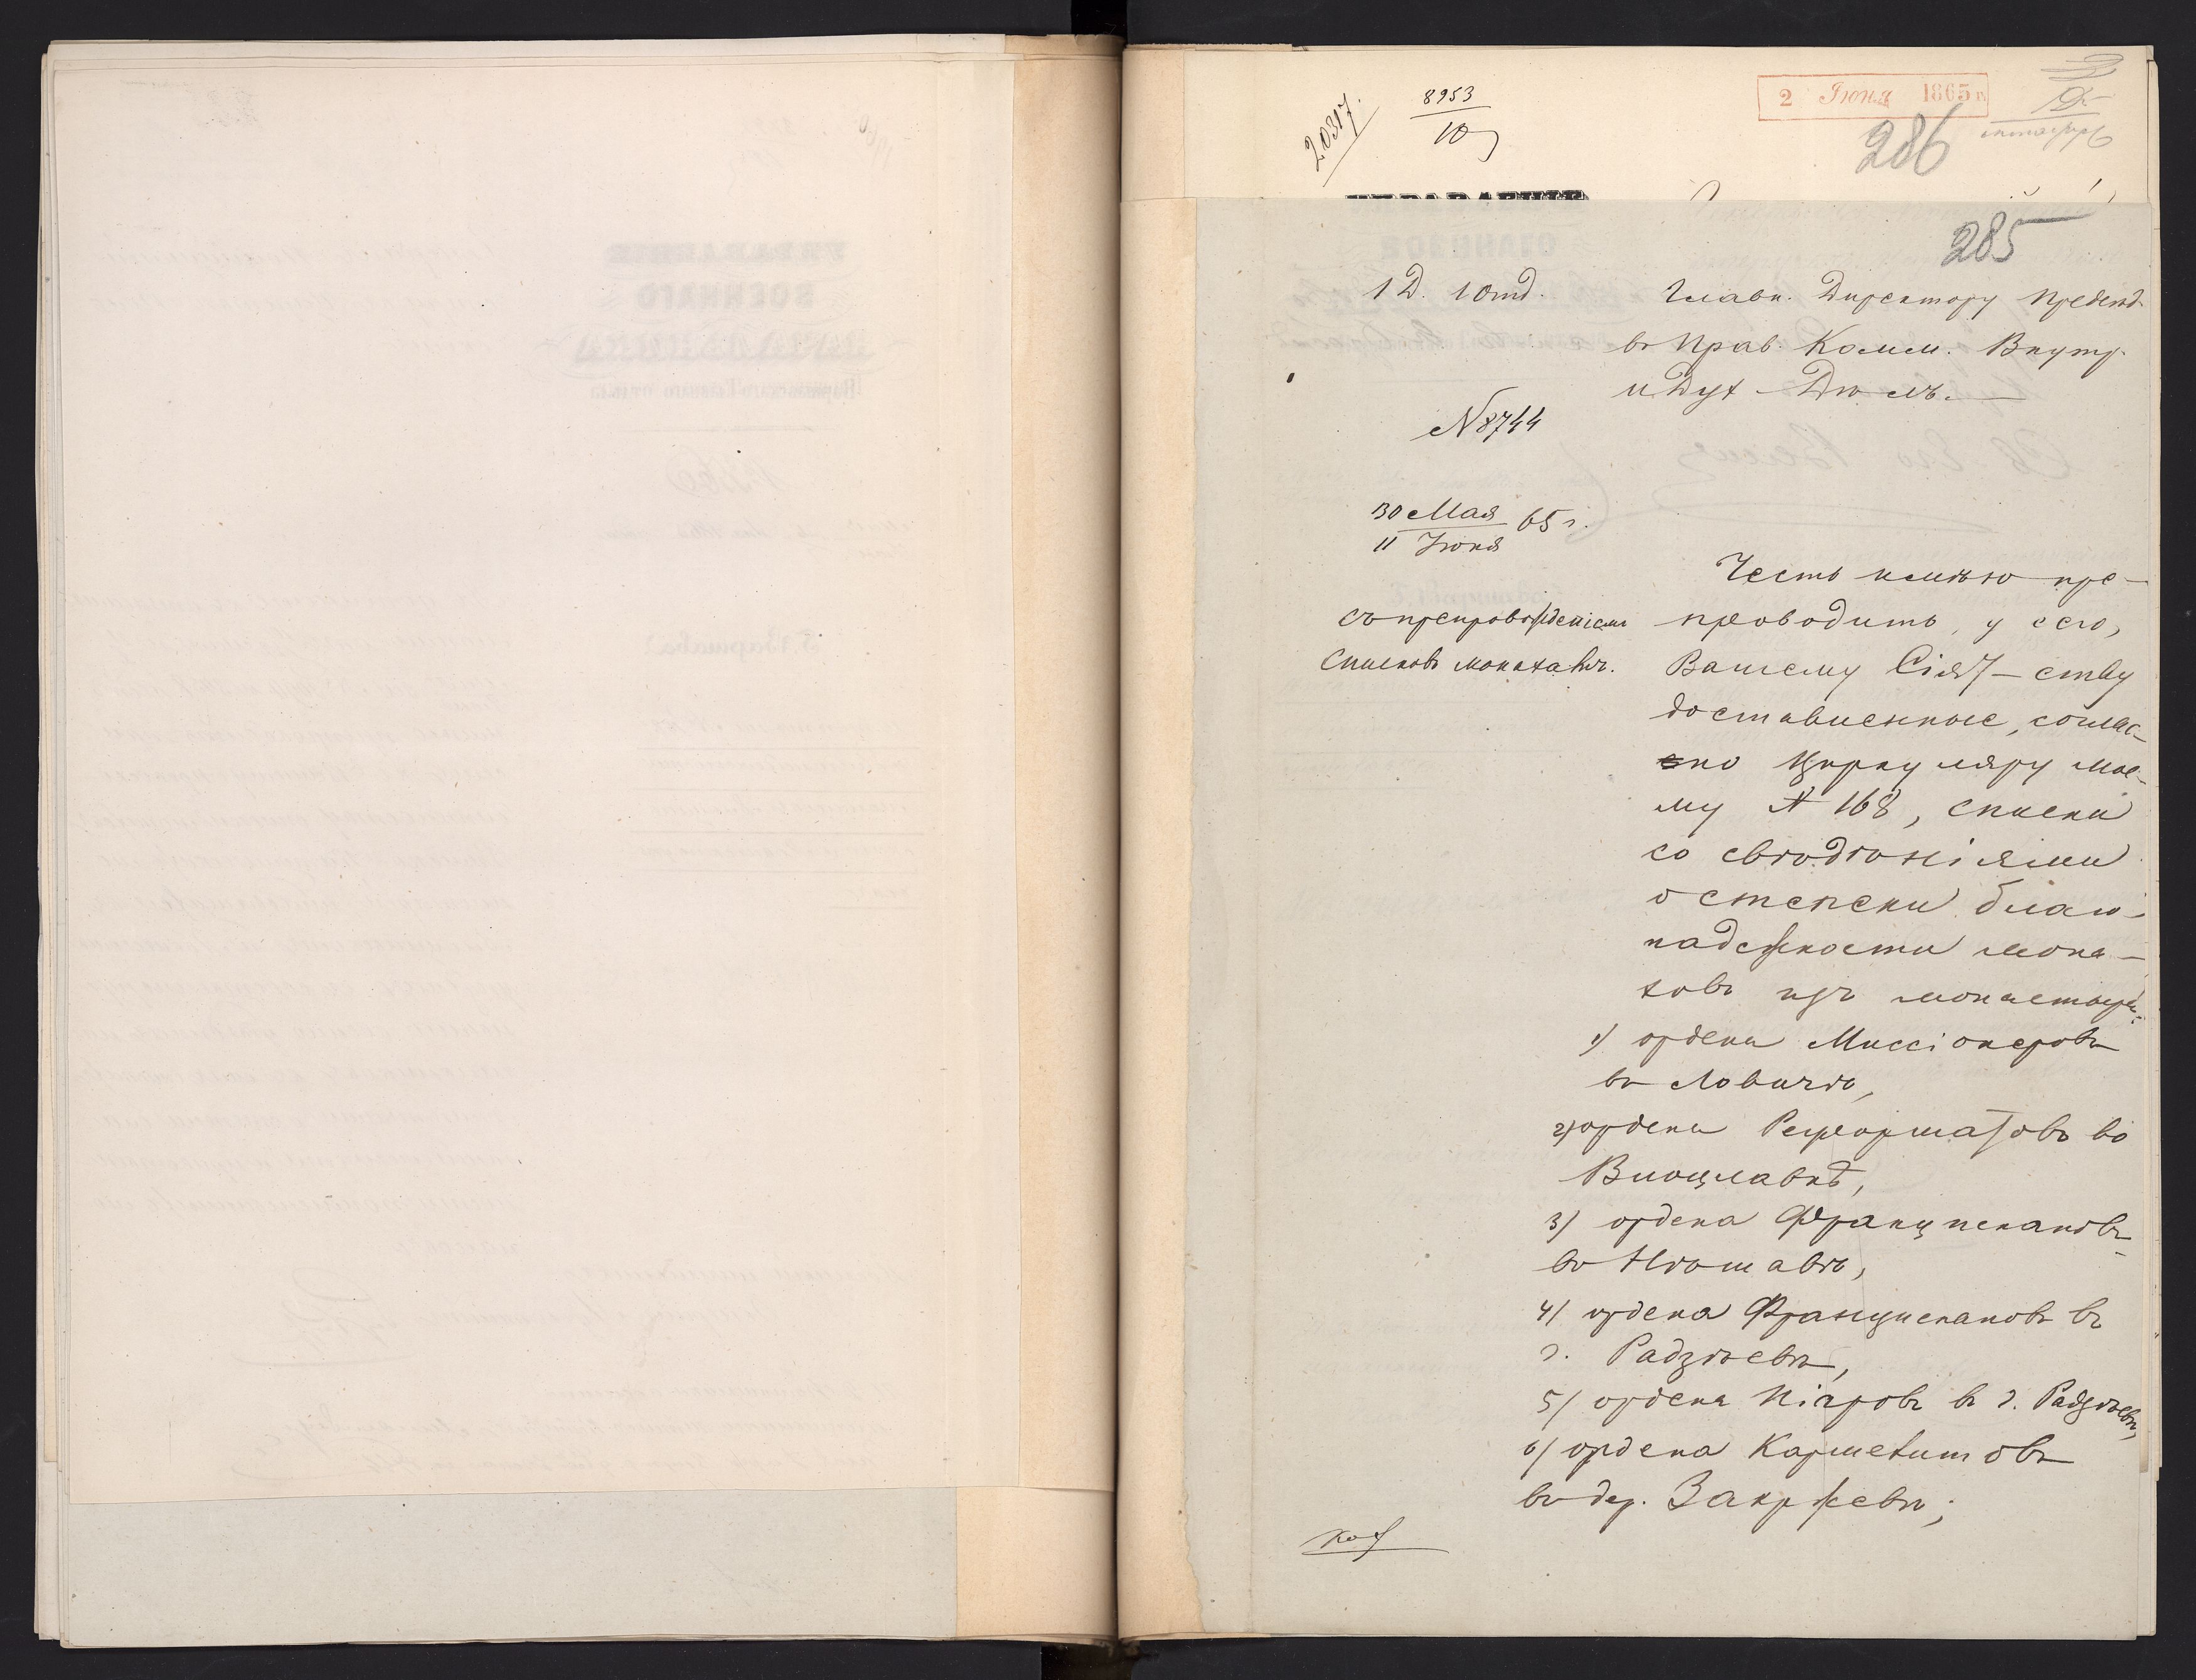 20317.
8953
10
2 Іюня 1865 г.
286
285
1 Д. 1 Отд.
Главн. Директору Предсѣд.
въ Прав. Комм. Внутр.
и Дух. Дѣлъ.
N 8744
30 Мая 65 г.
11 Іюня
съ препровожденіемъ
списковъ монахавъ.
Честь имѣю пре-
проводить, у сего,
Вашему Сіят-ству
доставленные, соглас-
но Циркуляру мое-
му N 168, списки
со свѣдѣніями
о степени благо-
надежности мона-
ховъ изъ монастырей:
1) ордена Миссіонеровъ
въ Ловичѣ,
2) ордена Реформатовъ во
Влоцлавкѣ,
3) ордена Францискановъ
въ Нѣшавѣ,
4) ордена Францискановъ въ
г. Радзѣевѣ,
5) ордена Піаровъ въ г. Радзѣевѣ,
6) ордена Кармелитовъ
въ дер. Закржевѣ;